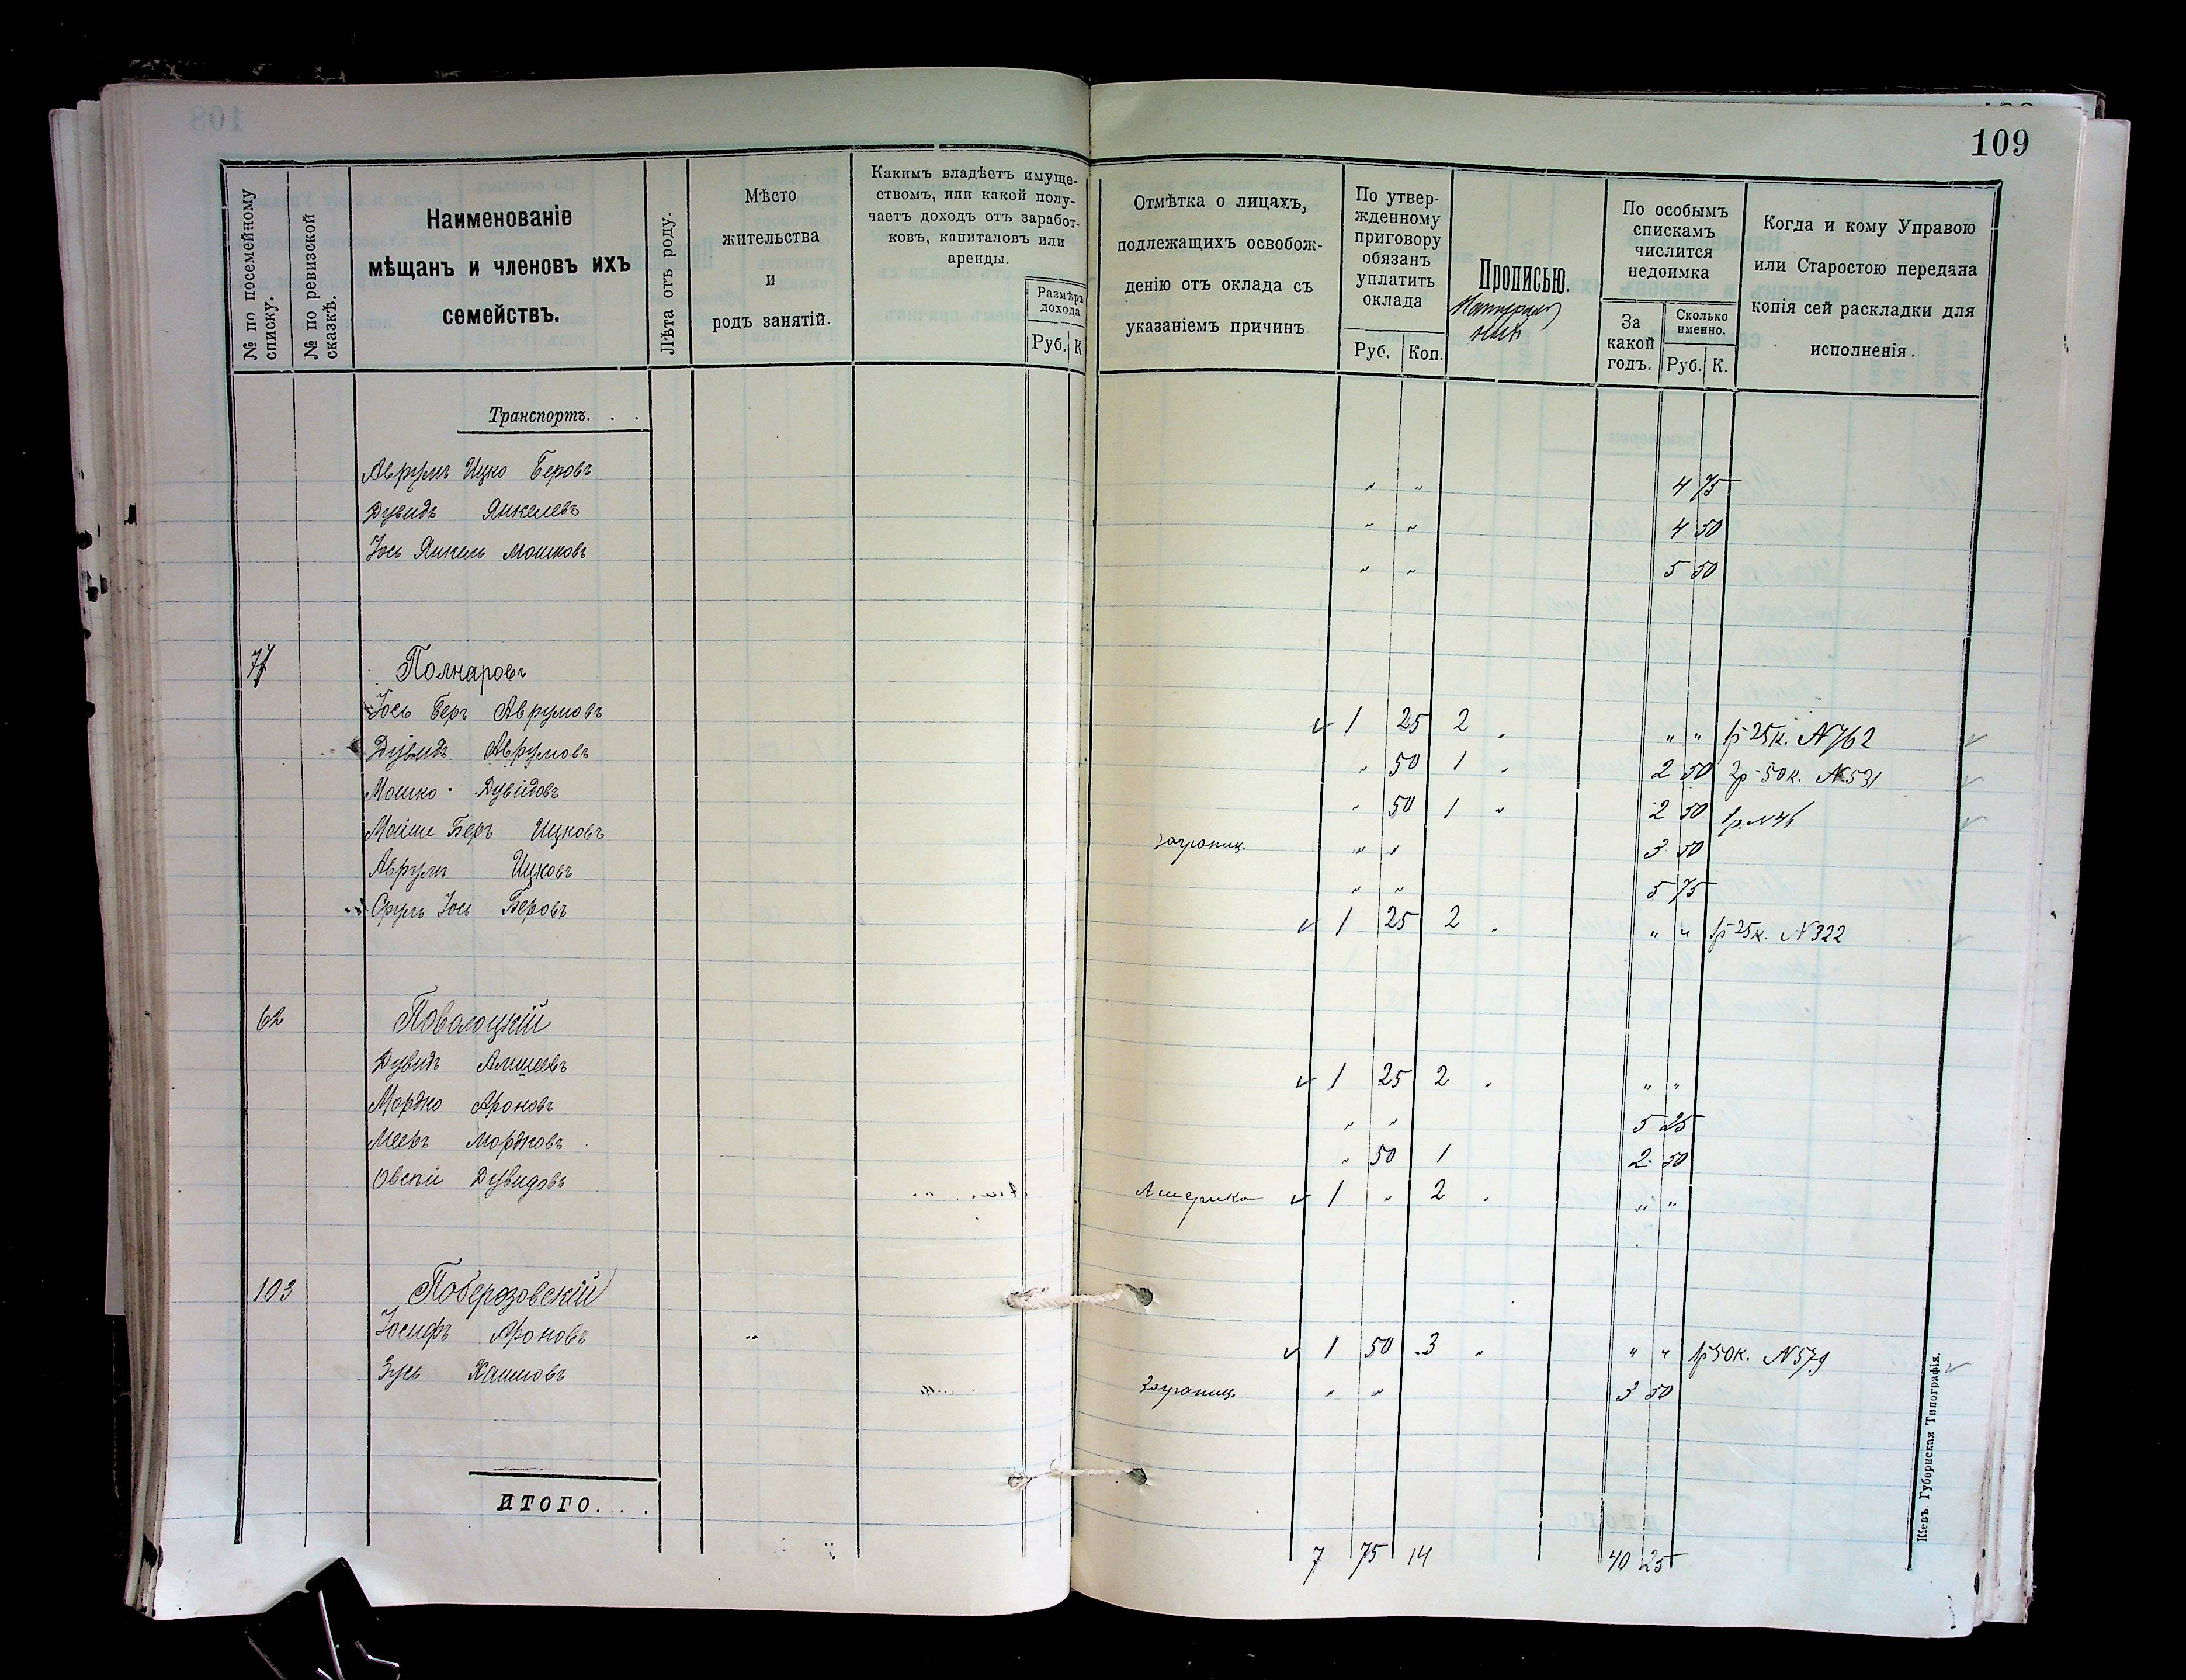 109
№ по посемейному списку.
№ по ревизской сказкѣ.
Наименованіе
мѣщанъ и членовъ ихъ
семействъ.
Лѣта отъ роду.
Мѣсто
жительства
и
родъ занятій.
Какимъ владѣетъ имуще-
ствомъ, или какой полу-
чаетъ доходъ отъ заработ-
ковъ, капиталовъ или
аренды.
Размѣръ
дохода
Руб. К
Отмѣтка о лицахъ,
подлежащихъ освобож-
денію отъ оклада съ
указаніемъ причинъ
По утвер-
жденному
приговору
обязанъ
уплатить
оклада
Руб. Коп.
Прописью.
По особымъ
спискамъ
числится
недоимка
За
какой
годъ.
Сколько
именно.
Руб. К.
Когда и кому Управою
или Старостою передана
копія сей раскладки для
исполненія.
Транспортъ. . .
Аврумъ Ицко Беровъ " " 4 75
Дувидъ Янкелевъ " " 4 50
Іось Янкель Мошковъ " " 5 50
77 Полнаровъ
Іось Беръ Аврумовъ 1 25 2 " " " 1р 25к. N 762
Дувидъ Аврумовъ " 50 1 " 2 50 2р 50к. N 531
Мошко Дувидовъ " 50 1 " 2 50 1р. N 46
Мойше Беръ Ицковъ заграниц. " " 3 50
Аврумъ Ицковъ " " 5 75
Сруль Іось Беровъ 1 25 2 " " " 1р 25к. N 322
62 Поволоцкій
Дувидъ Алишаевъ 1 25 2 " " "
Мордко Ароновъ " " 5 25
Мееръ Мордковъ " 50 1 2 50
Овсѣй Дувидовъ Америка 1 " 2 " " "
103 Поберозовскій
Іосифъ Ароновъ 1 50 3 " " " 1р 50к. N 579
Зусь Хаимовъ Заграниц. " " 3 50
ИТОГО. . . .
7 75 14 40 25
Кіевъ Губернская Типографія.